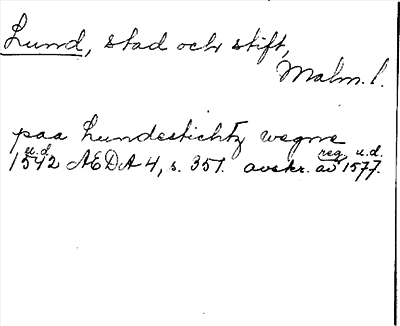 Lund, stad och stift,
Malm. l.
paa Lundestichtz wegne
u.d. reg. u.d.
1542 AEDA 4, s. 351. avskr. av 1577.